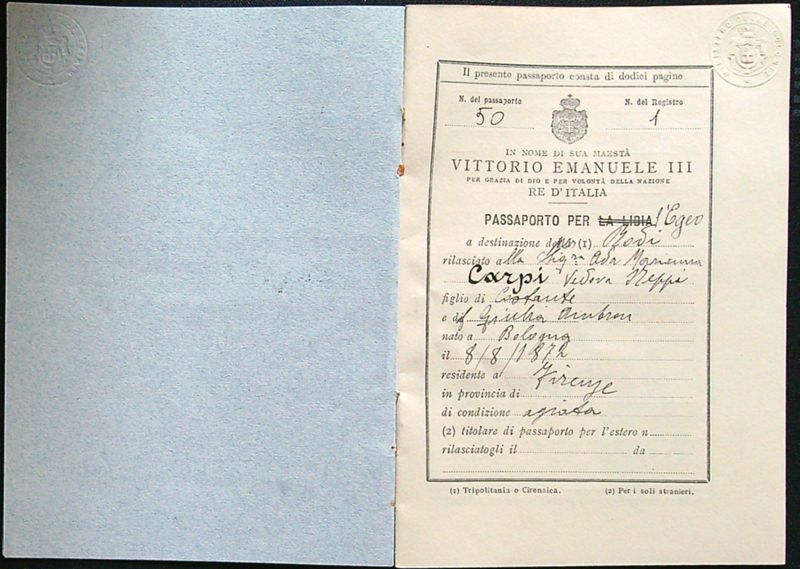 Il presente passaporto consta di dodici pagine
N. del passaporto N. del Registro
50 1
IN NOME DI SUA MAESTÀ
VITTORIO EMANUELE III
PER GRAZIA DI DIO E PER VOLONTÀ DELLA NAZIONE
RE D'ITALIA
PASSAPORTO PER LA LIBIA l'Egeo
a destinazione della (1) Rodi
rilasciato alla Sigra Ada Marianna
Carpi Vedova
figlio di Costante
e di Giulia Ambron
nato a Bologna
il 8/8/1872
residente a Firenze
in provincia di
di condizione agiata
(2) titolare di passaporto per l'estero n.
rilasciatogli il da
(1) Tripolitania o Cirenaica. (2) Per i soli stranieri.